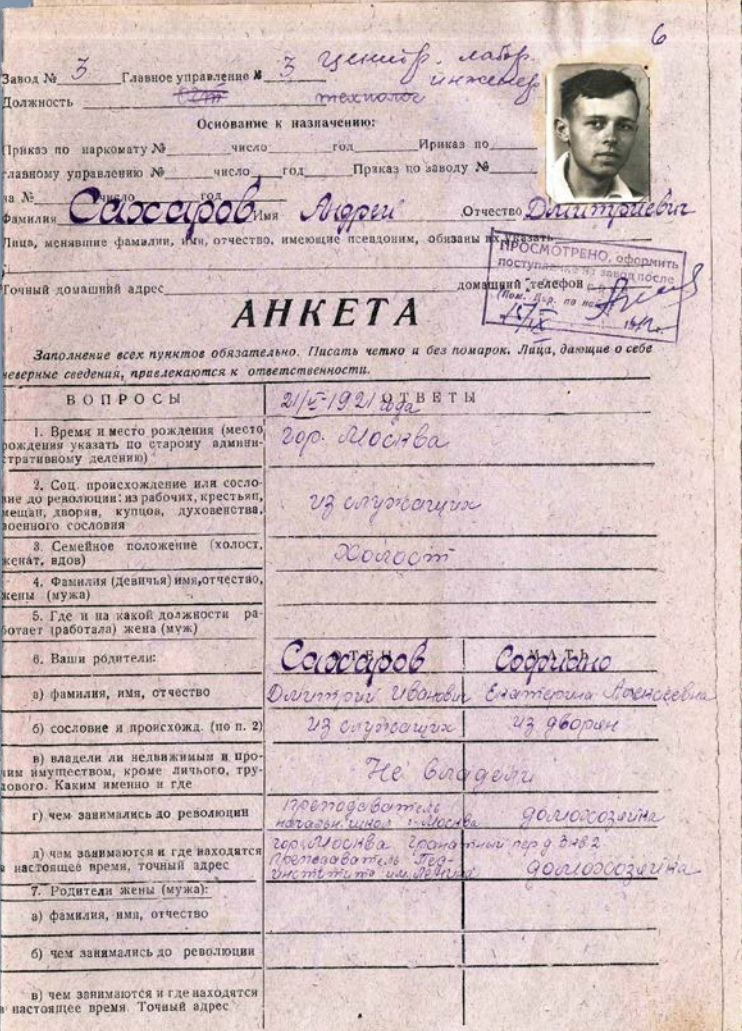 6
Завод № 3 Главное управление № 3 центр. лабор.
инженер
Должность технолог
Основание к назначению:
Приказ по наркомату № число год Приказ по
главному управлению № число год Приказ по заводу №
за № число год
Фамилия Сахаров Имя Андрей Отчество Дмитриевич
Лица, менявшие фамилии, имя, отчество, имеющие псевдоним, обязаны их указать
ПРОСМОТРЕНО, оформить
поступление на завод после
Точный домашний адрес домашний телефон
АНКЕТА
Заполнение всех пунктов обязательно. Писать четко и без помарок. Лица, дающие о себе
неверные сведения, привлекаются к ответственности.
ВОПРОСЫ ОТВЕТЫ
21/V-1921 года
1. Время и место рождения (место
рождения указать по старому админи-
стративному делению)
гор. Москва
2. Соц. происхождение или сосло-
вие до революции: из рабочих, крестьян,
мещан, дворян, купцов, духовенства,
военного сословия
из служащих
3. Семейное положение (холост,
женат, вдов)
Холост
4. Фамилия (девичья) имя, отчество,
жены (мужа)
5. Где и на какой должности ра-
ботает (работала) жена (муж)
6. Ваши родители:
ОТЕЦ МАТЬ
Сахаров Софиано
а) фамилия, имя, отчество
Дмитрий Иванович Екатерина Алексеевна
б) сословие и происхожд. (по п. 2)
из служащих из дворян
в) владели ли недвижимым и про-
чим имуществом, кроме личного, тру-
дового. Каким именно и где
Не владели
г) чем занимались до революции
преподаватель
начальн. школ г. Москва домохозяйка
д) чем занимаются и где находятся
в настоящее время, точный адрес
гор. Москва Гранатный пер д. 3 кв 2
Преподаватель Пед-
института им. Ленина домохозяйка
7. Родители жены (мужа):
а) фамилия, имя, отчество
б) чем занимались до революции
в) чем занимаются и где находятся
в настоящее время. Точный адрес